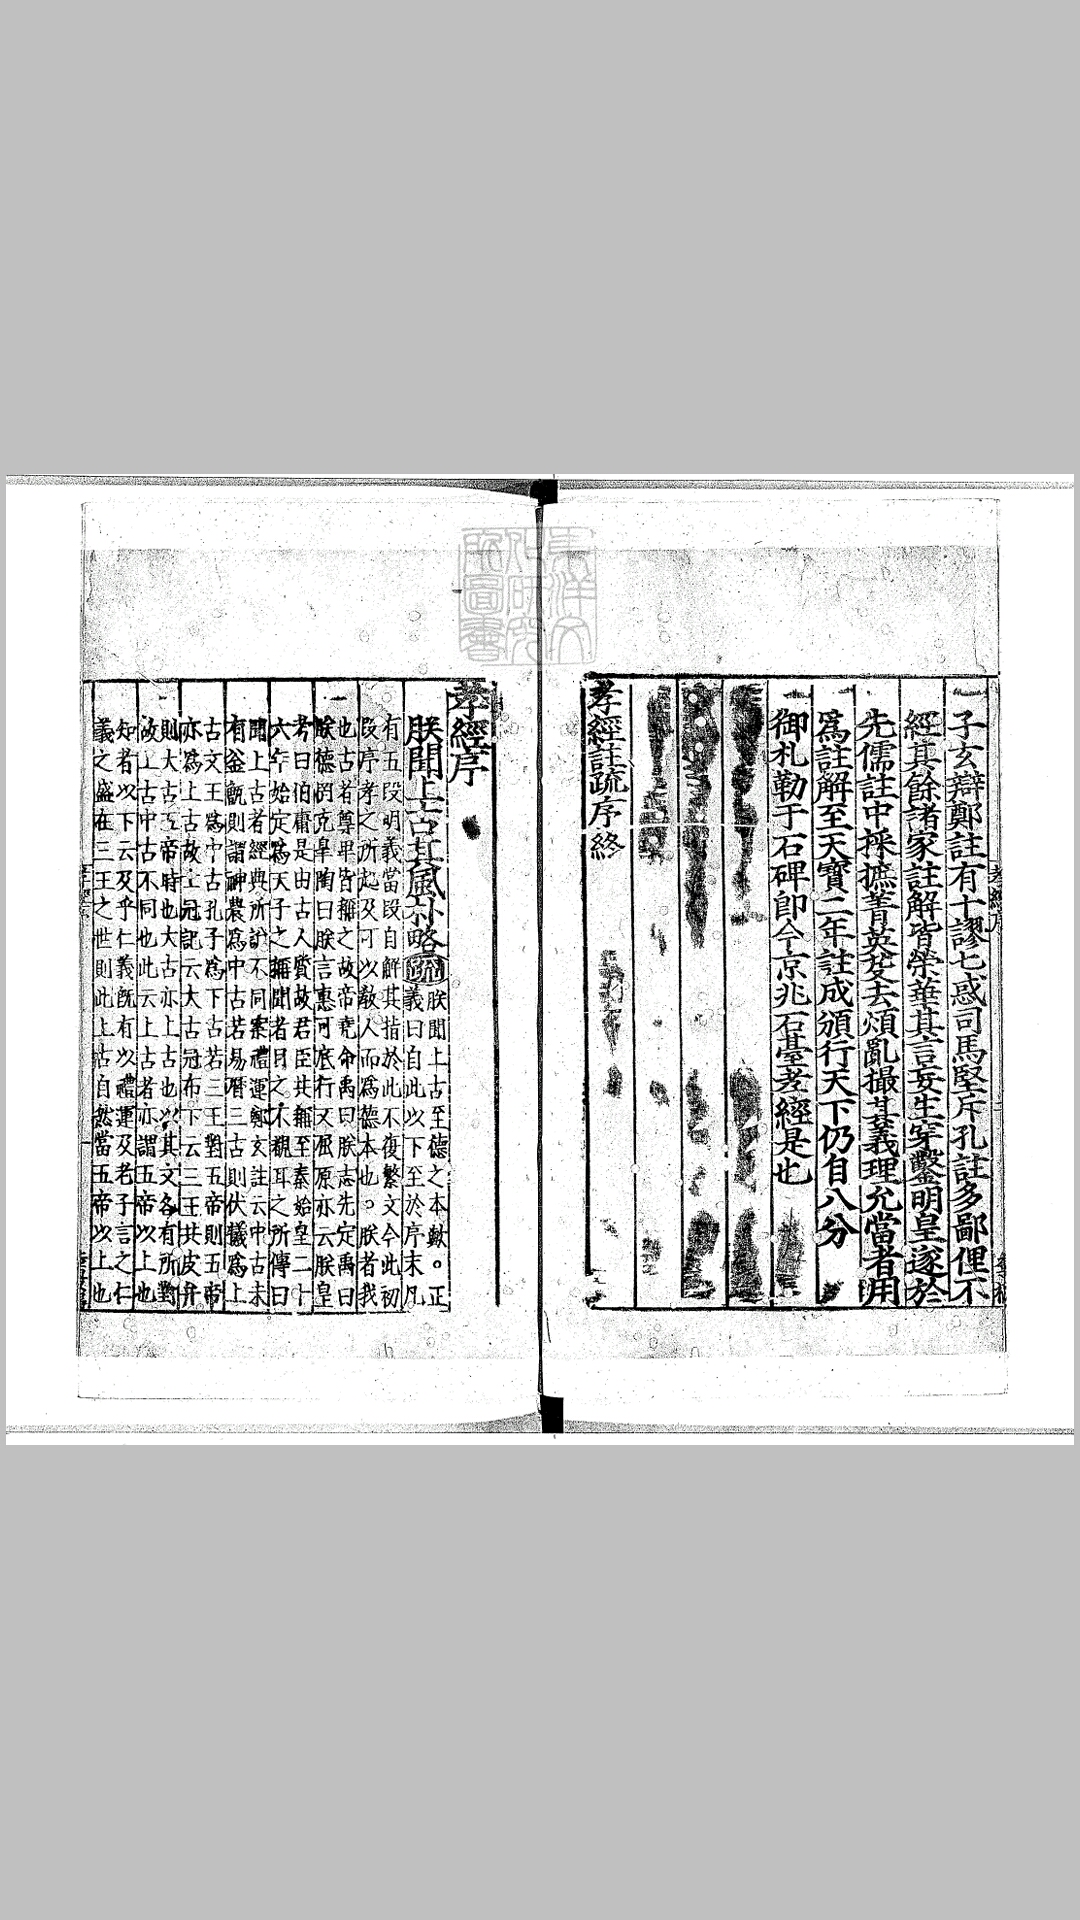 子玄辯鄭註有十謬七惑司馬堅斥孔註多鄙俚不
經其餘諸家註解皆榮華其言妄生穿鑿明皇遂於
先儒註中採摭菁英芟去煩亂撮其義理允當者用
爲註解至天寶二年註成頒行天下仍自八分
御札勒于石碑卽今京兆石臺孝經是也
孝經註疏序終
孝經序
朕聞上古其風朴略疏
朕聞上古至德之本歟。正
義曰自此以下至於序末凡
有五段明義當段自解其指於此不復繁文今此初
段序孝之所起及可以敎人而爲德本也。朕者我
也古者尊卑皆稱之故帝堯命禹曰朕志先定禹曰
朕德罔克皐陶曰朕言惠可底行又屈原亦云朕皇
考曰伯庸是由古人質故君臣共稱至秦始皇二十
六年始定爲天子之稱聞者目之不覩耳之所傳曰
聞上古者經典所說不同案禮運鄭玄註云中古未
有釜甑則謂神農爲中古若易曆三古則伏犧爲上
古文王爲中古孔子爲下古若三王對五帝則五帝
亦爲上古故士冠記云大古冠布下云三王共皮弁
則大古五帝時也大古亦上古也以其文各有所對
故上古中古不同也此云上古者亦謂五帝以上也
知者以下云及乎仁義旣有以禮運及老子言之仁
義之盛在三王之世則此上古自然當五帝以上也
東洋文
化研究
所圖書
孝經序